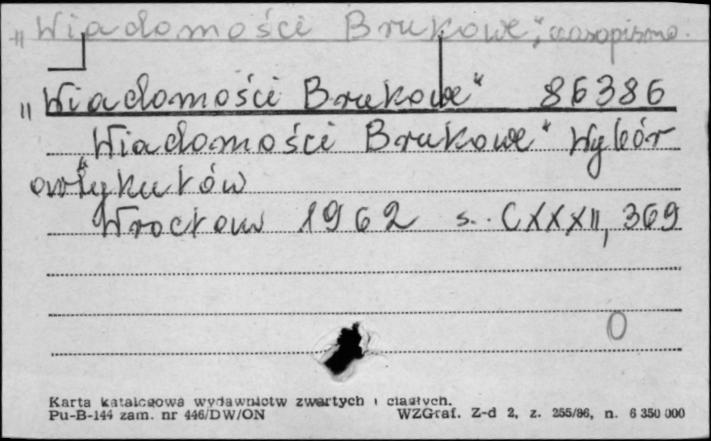 „Wiadomości Brukowe", czasopismo.
„Wiadomości Brukowe" 86386
„Wiadomości Brukowe" Wybór
artykułów
Wrocław 1962 s. CXXXII, 369
0
Karta katalogowa wydawnictw zwartych i ciągłych.
Pu-B-144 zam. nr 446/DW/ON WZGraf. Z-d 2, z. 255/86, n. 6 350 000